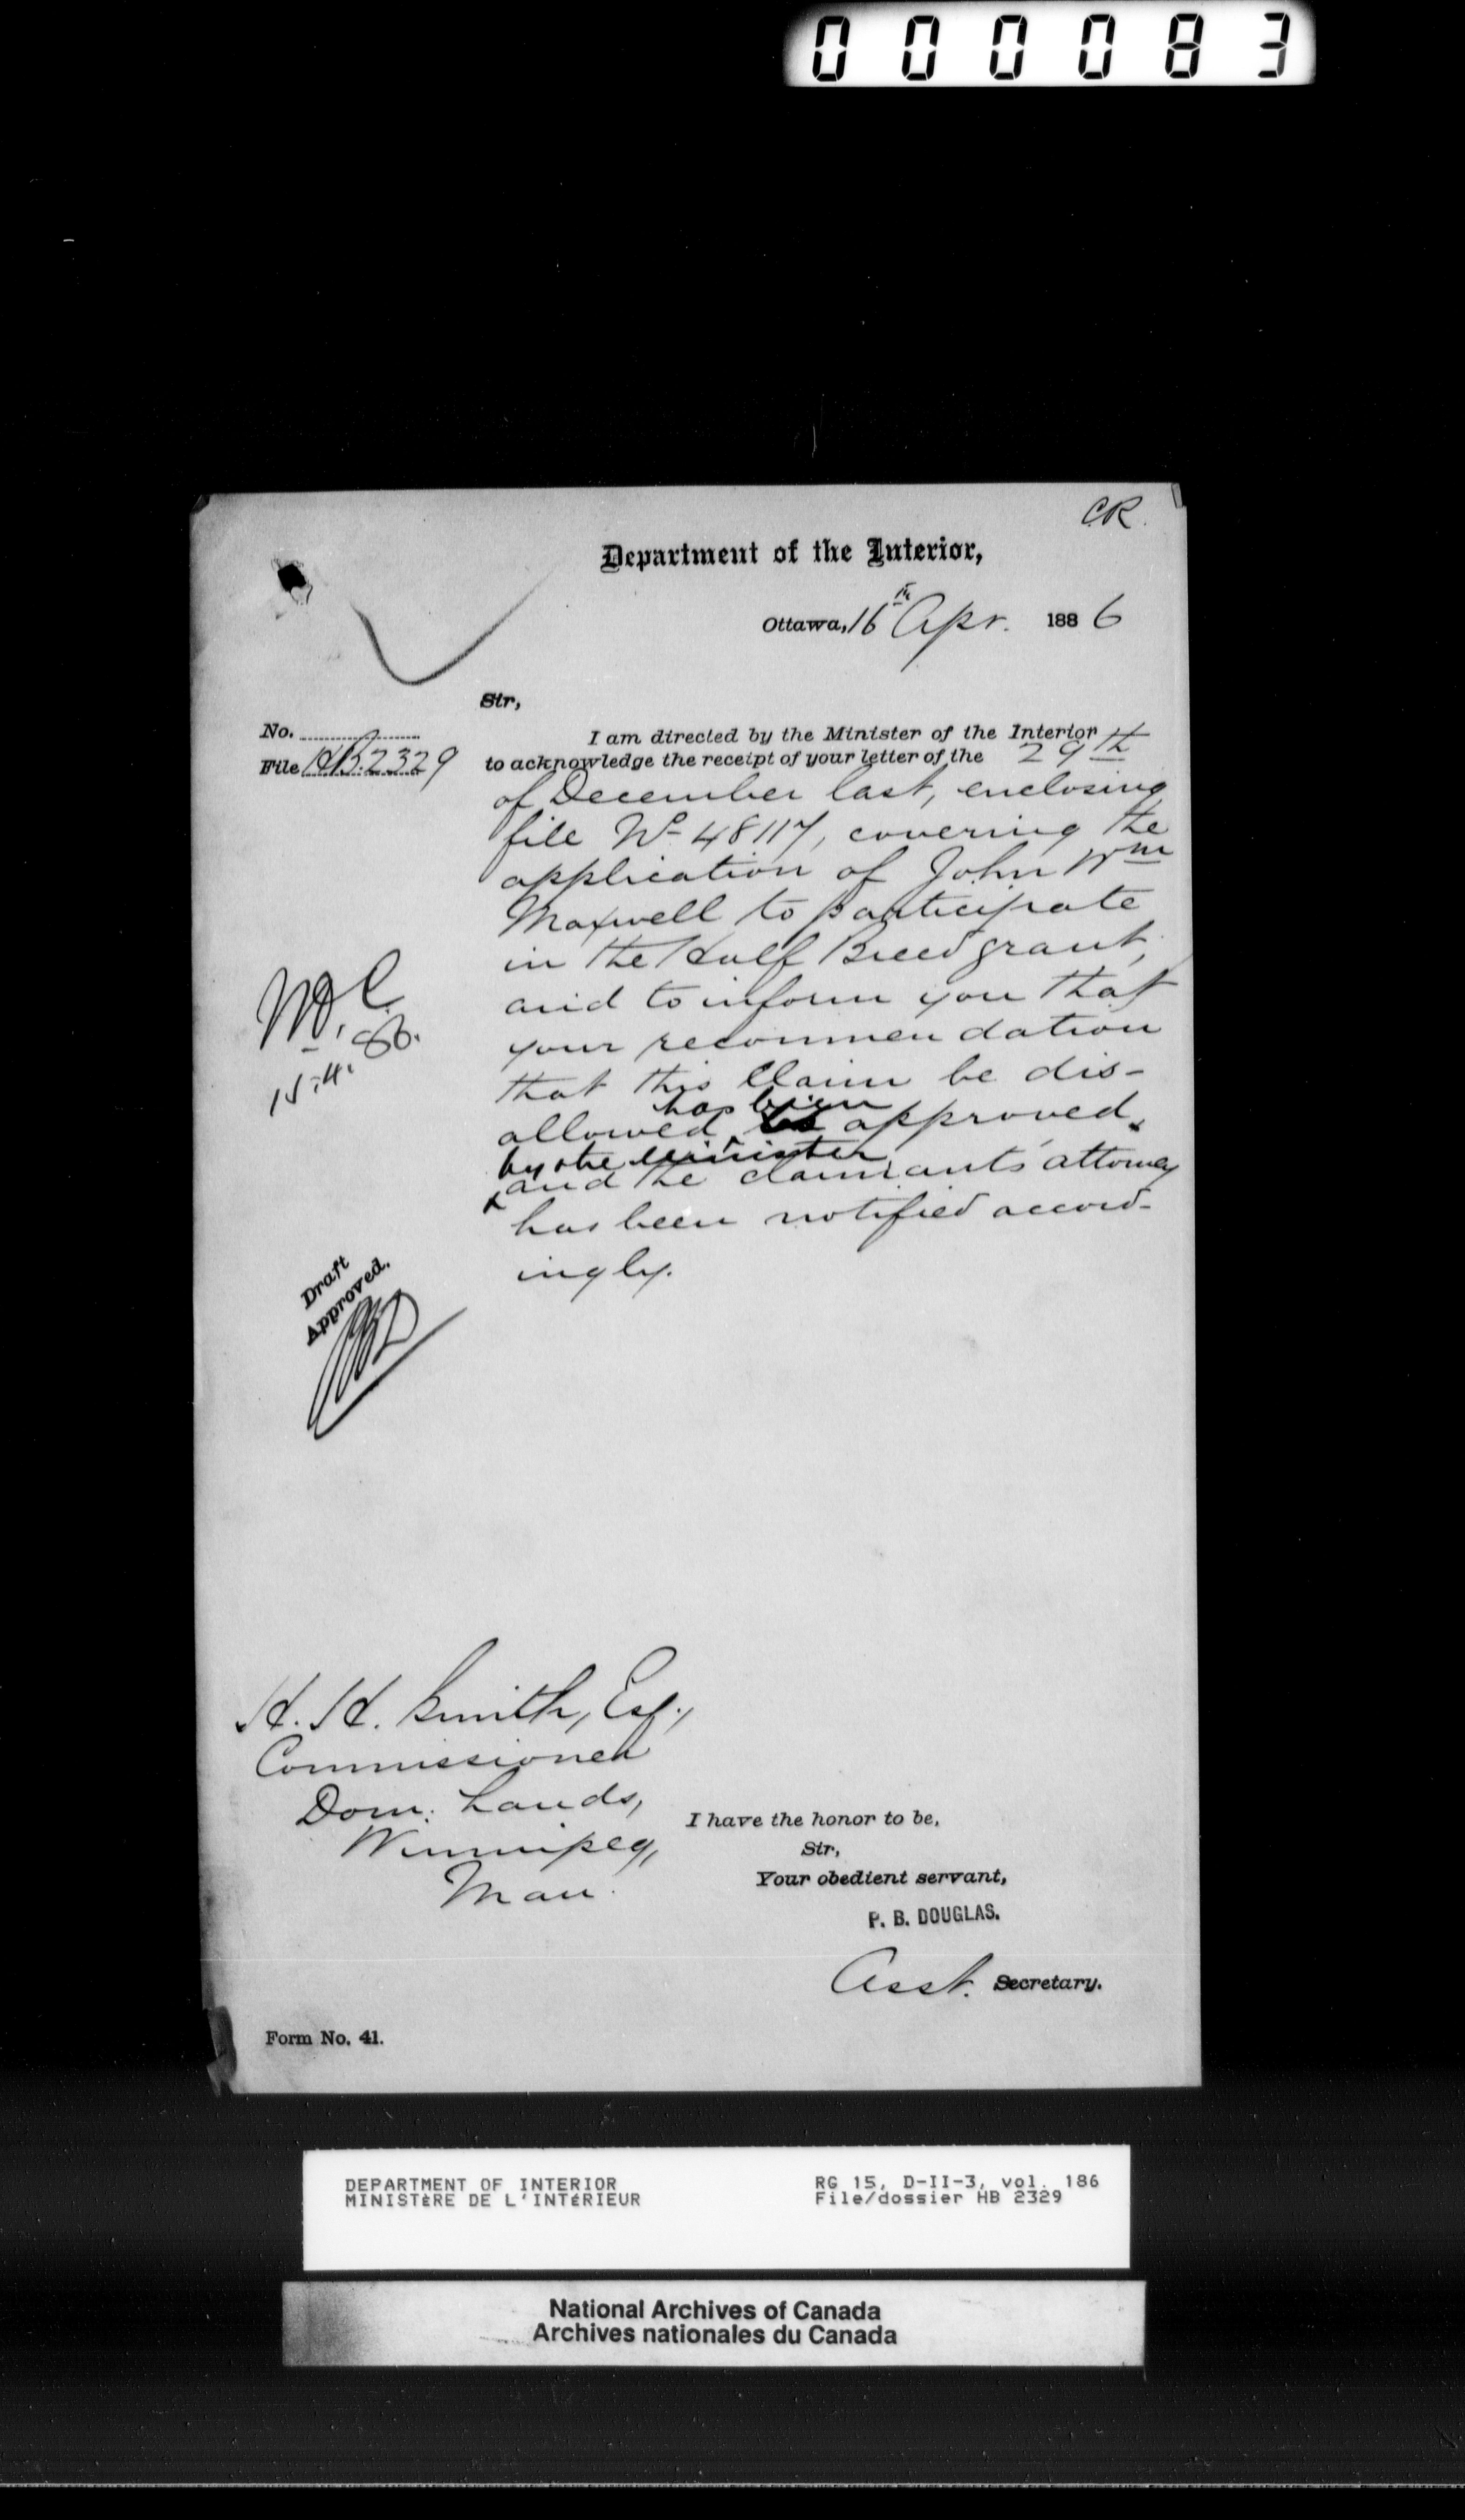 000083
CR.
Department of the Interior,
Ottawa, 16th Apr. 1886
Sir,
No.
File HB.2329
I am directed by the Minister of the Interior
to acknowledge the receipt of your letter of the 29th
of December last, enclosing
file No 48117, covering the
application of John Wm
Maxwell to participate
in the Half Breed grant,
and to inform you that
your recommendation
that this Claim be dis-
allowed has been approved
by the Minister
and the claimants' attorney
has been notified accord-
ingly.
15.4.86.
Draft
Approved.
H. H. Smith, Esq.,
Commissioner
Dom. Lands,
Winnipeg,
Man.
I have the honor to be,
Sir,
Your obedient servant,
P. B. DOUGLAS.
Asst. Secretary.
Form No. 41.
DEPARTMENT OF INTERIOR
MINISTÈRE DE L'INTÉRIEUR
RG 15, D-II-3, vol. 186
File/dossier HB 2329
National Archives of Canada
Archives nationales du Canada